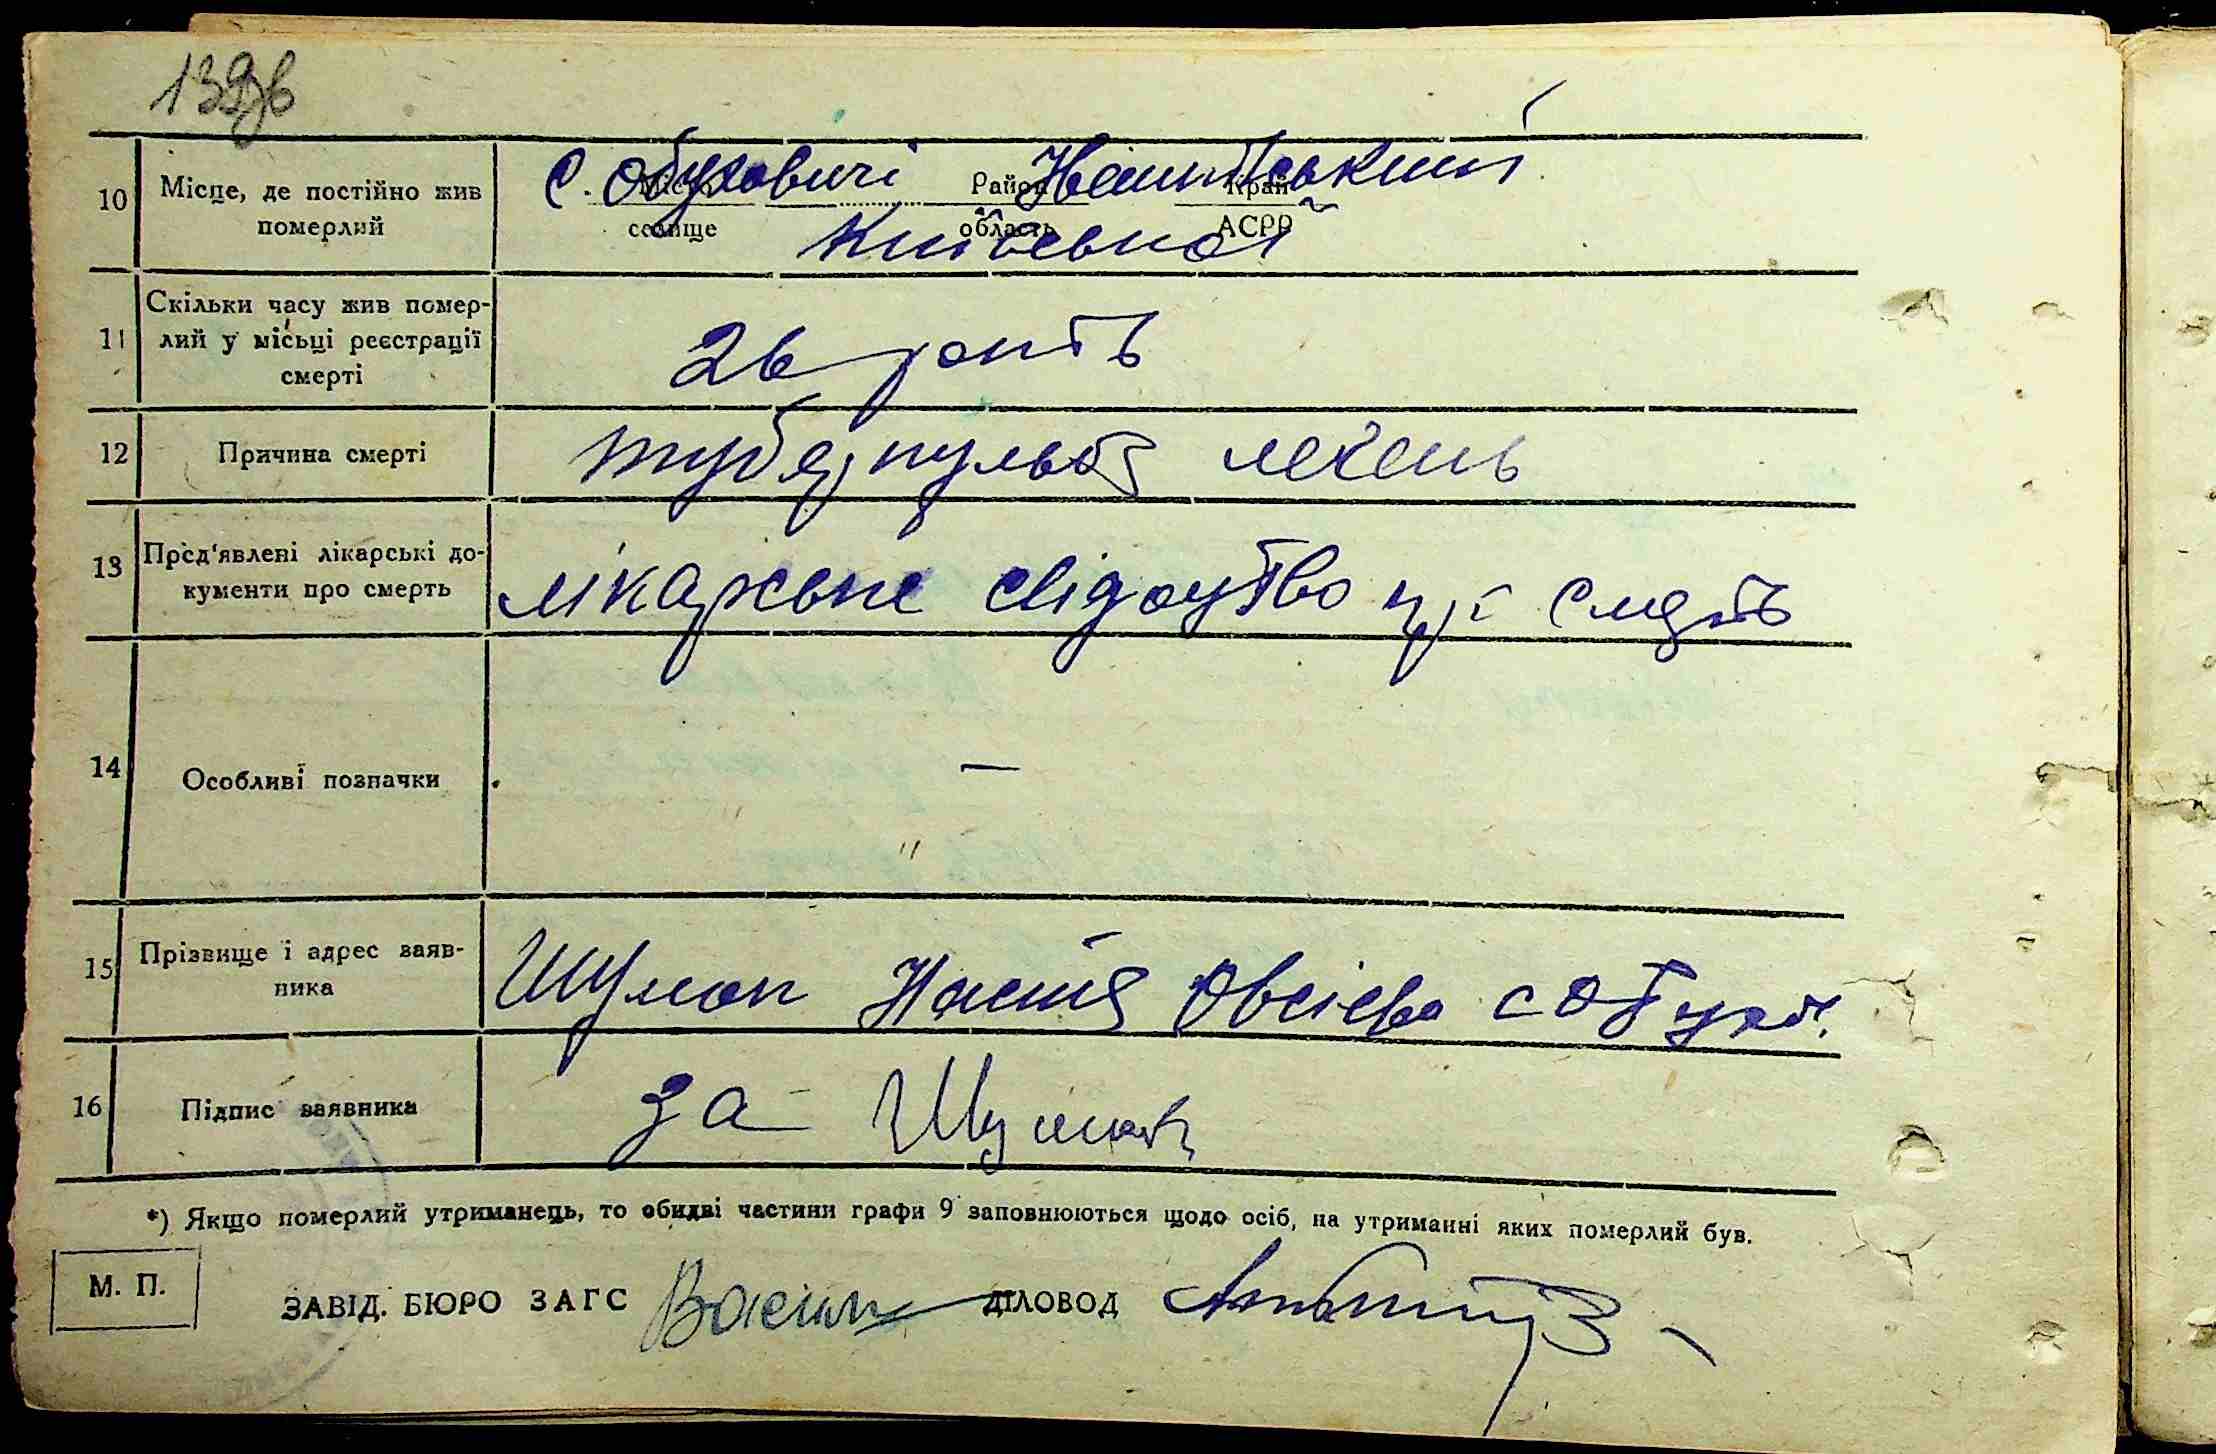 139зв
10 Місце, де постійно жив померлий
с. Обуховичі Іванківський
Місто Район Край
селище область АСРР
Київської
11 Скільки часу жив померлий у місьці реєстрації смерті
26 років
12 Причина смерті
туберкульоз легень
13 Пред'явлені лікарські документи про смерть
лікарське свідоцтво про смерть
14 Особливі позначки
—
"
15 Прізвище і адрес заявника
Настя Овсієва с Обухов.
16 Підпис заявника
за
*) Якщо померлий утриманець, то обидві частини графи 9 заповнюються щодо осіб, на утриманні яких померлий був.
М. П.
ЗАВІД. БЮРО ЗАГС ДІЛОВОД